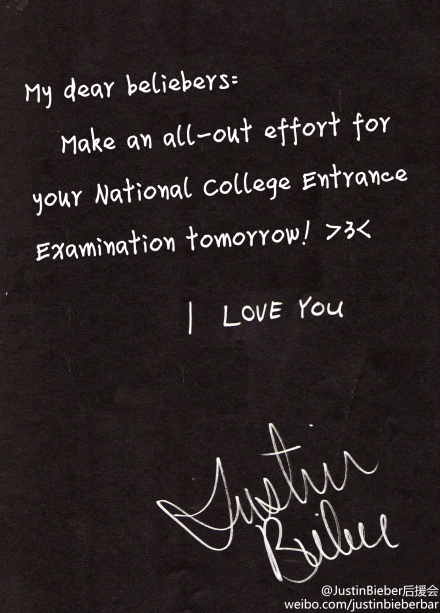 My dear beliebers:
Make an all-out effort for
your National College Entrance
Examination tomorrow! >3<
I LOVE YOU
Justin
Bieber
@JustinBieber后援会
weibo.com/justinbieberbar